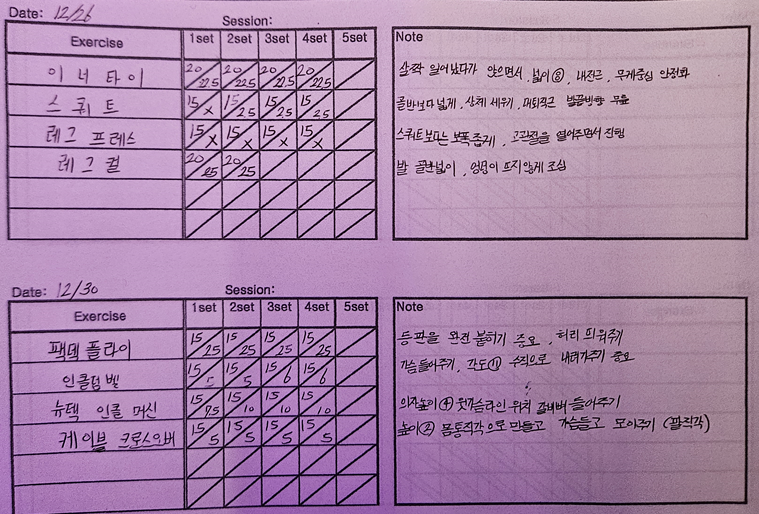 Date: 12/26 Session:
Exercise 1set 2set 3set 4set 5set Note
이너타이 20/22.5 20/22.5 20/22.5 20/22.5 살짝 일어났다가 앉으면서, 넓이⑧, 내전근, 무게중심 안정화
스쿼트 15/x 15/25 15/25 15/25 골반보다 넓게, 상체 세우기, 대퇴직근 무릎
레그 프레스 15/x 15/x 15/x 15/x 스쿼트보다는 보폭 좁게, 고관절을 열어주면서 진행
레그 컬 20/25 20/25 발 골반넓이, 엉덩이 뜨지않게 조심
Date: 12/30 Session:
Exercise 1set 2set 3set 4set 5set Note
팩덱 플라이 15/25 15/25 15/25 15/25 등판을 완전 붙히기 중요, 허리 띄워주기
인클덤벨 15/5 15/5 15/6 15/6 가슴 들어주기, 각도⑪ 수직으로 내려가주기 중요
뉴텍 인클 머신 15/7.5 15/10 15/10 15/10 의자높이④ 윗가슴라인 위치 들어주기
케이블 크로스오버 15/5 15/5 15/5 15/5 높이② 몸통직각으로 만들고 가슴들고 모아주기 (팔직각)